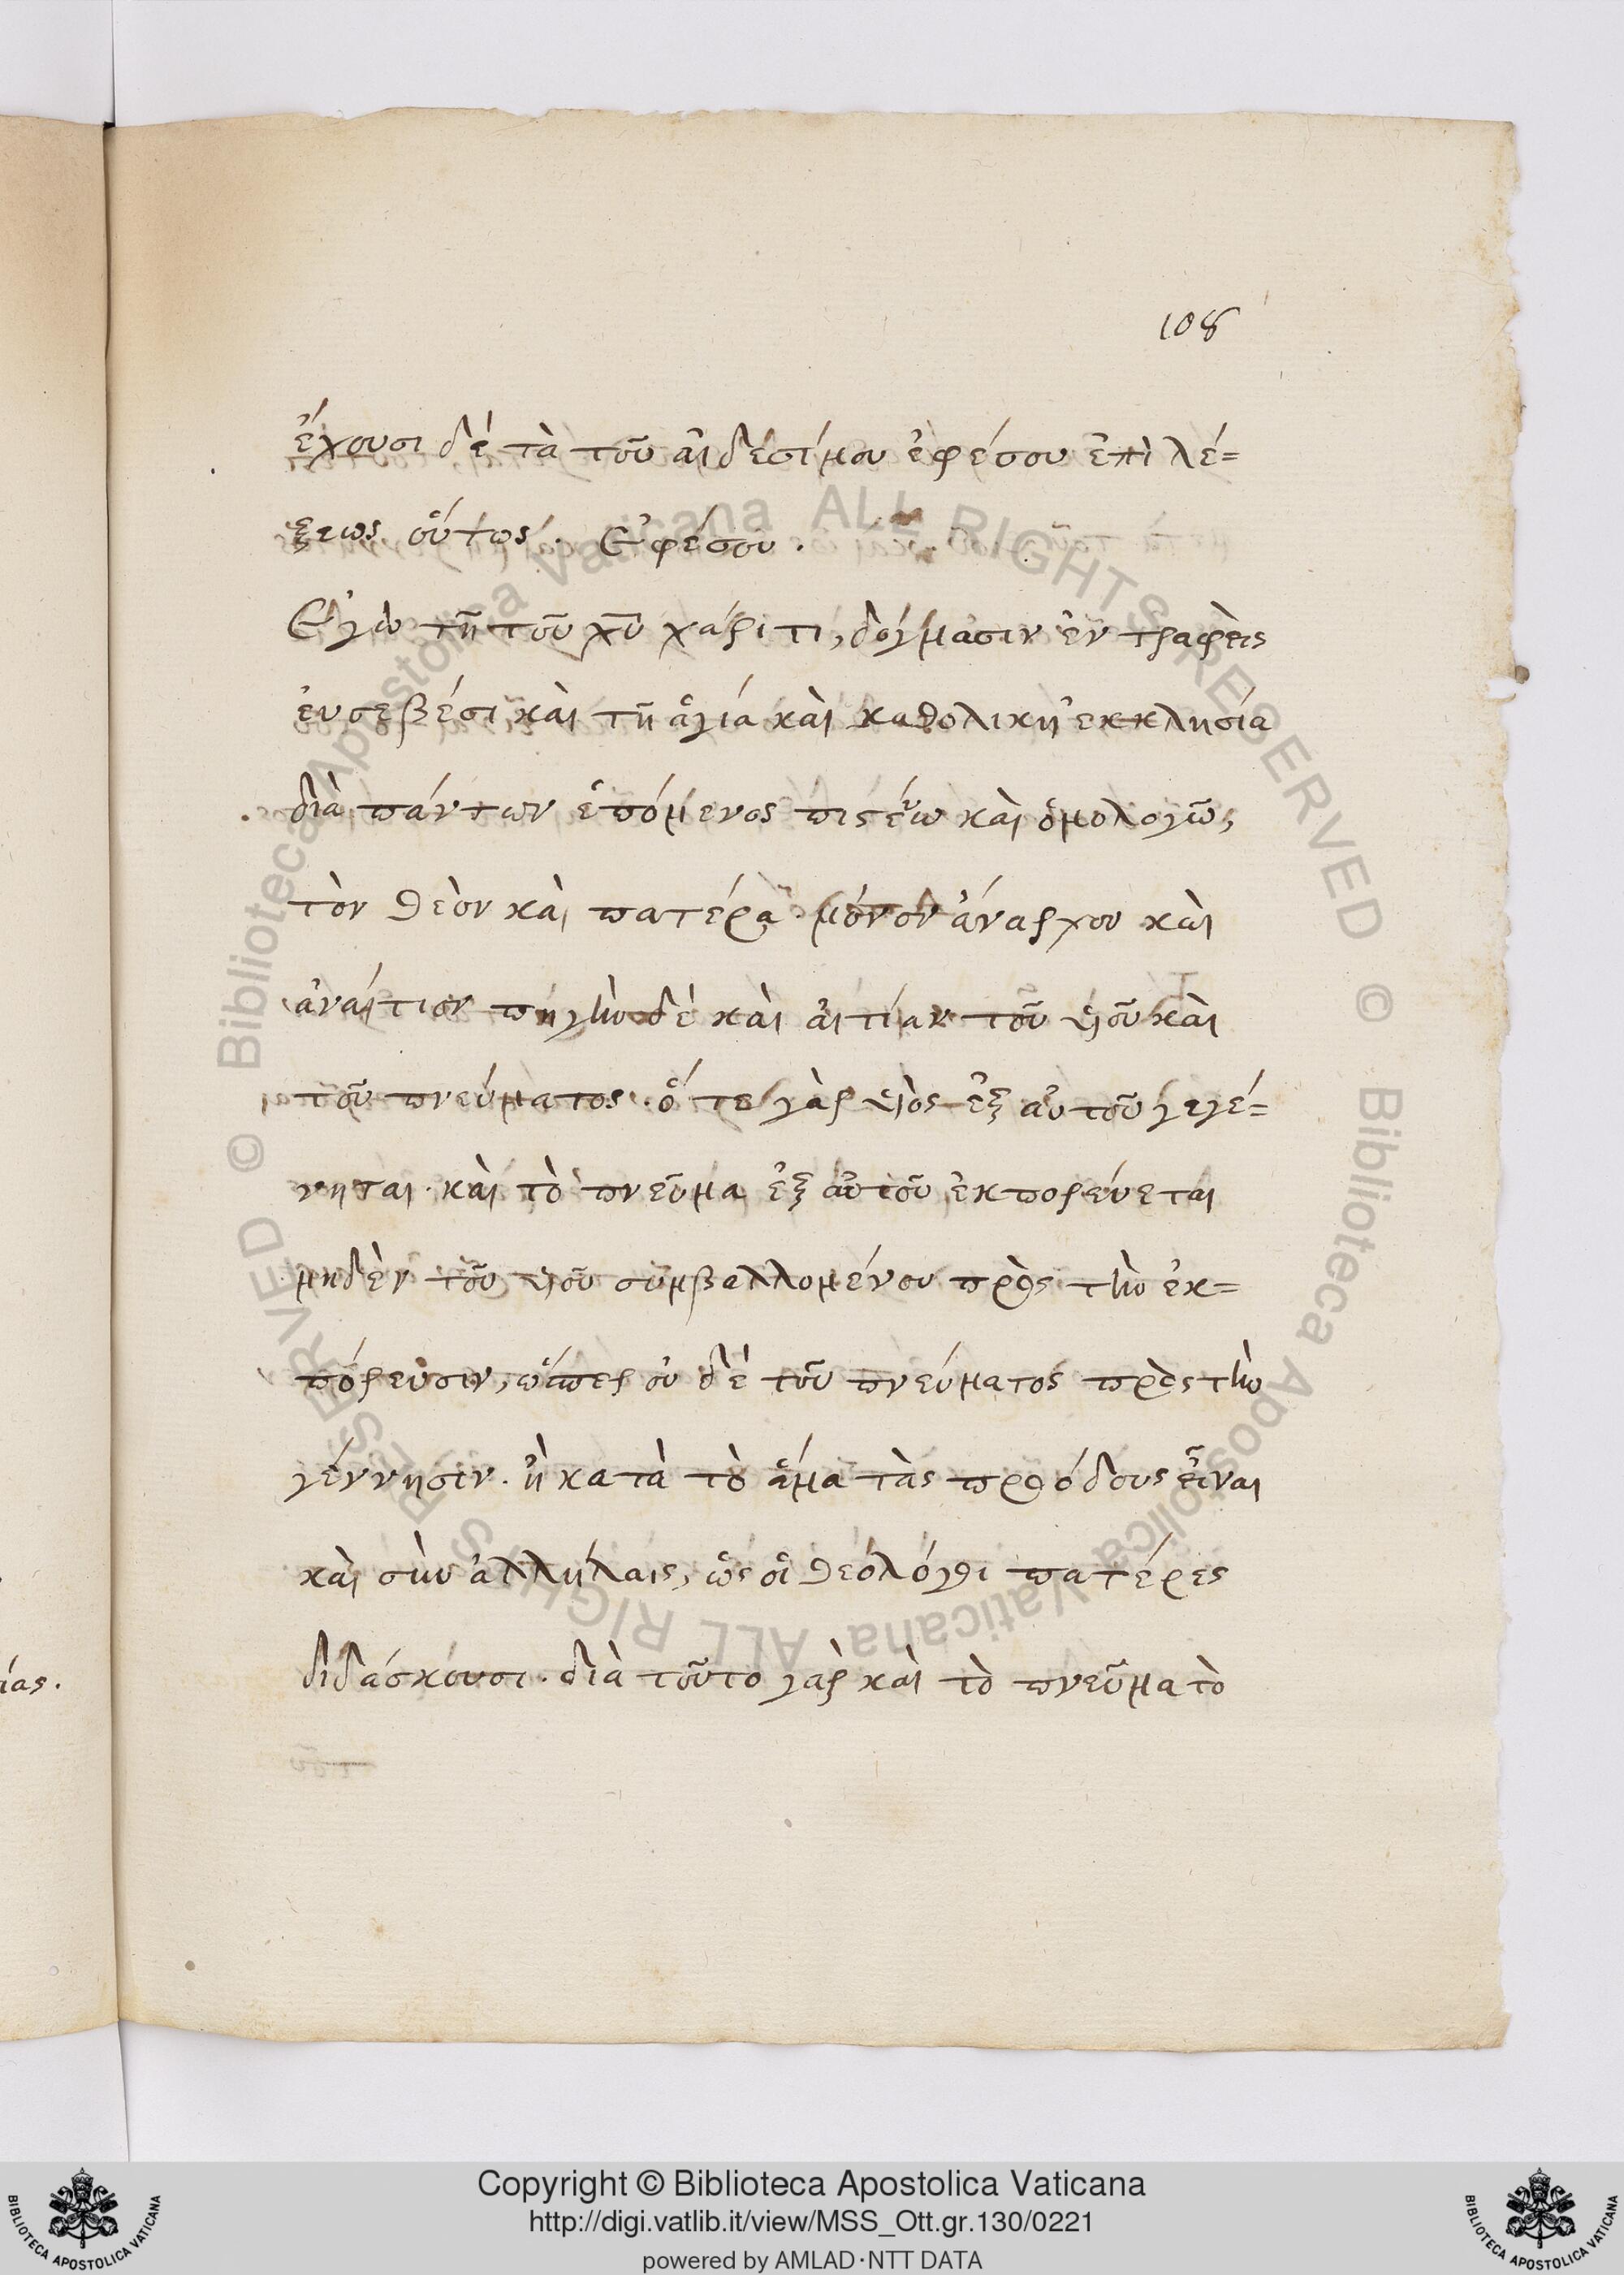 108
ἔχουσι δὲ τὰ τοῦ αἰδέσίμου ἐφέσου ἐπὶ λέ=
ξεως οὕτως. Ἐφέσου.
Ἐγὼ τῆ τοῦ χ̅υ̅ χάριτι, δόγμασιν ἐν τραφεὶς
ἐυσεβέσι, καὶ τῆ ἁγία καὶ καθολικῆ ἐκκλησία
διὰ πάντων ἑπόμενος πιστεύω καὶ ὁμολογῶ,
τὸν θεὸν καὶ πατέρα μόνον ἄναρχον καὶ
ἀναίτιον πηγὴν δὲ καὶ αἰτίαν τοῦ υἱοῦ καὶ
τοῦ πνεύματος. ὅ τε γὰρ υἱὸς ἐξ αὐτοῦ γεγέ=
νηται. καὶ τὸ πνεῦμα ἐξ αὐτοῦ ἐκπορεύεται
μηδὲν τοῦ υἱοῦ συμβαλλομένου πρὸς τὴν ἐκ=
πόρευσιν, ὥσπερ οὐ δὲ τοῦ πνεύματος πρὸς τὴν
γέννησιν. ἢ κατὰ τὸ ἅμα τὰς προόδους εἶναι
καὶ σὺν ἀλλήλαις, ὡς οἱ θεολόγοι πατέρες
διδάσκουσι. διὰ τοῦτο γὰρ καὶ τὸ πνεῦμα τὸ
ίας.
© Biblioteca Apostolica Vaticana ALL RIGHTS RESERVED © Biblioteca Apostolica Vaticana ALL RIGHTS RESERVED
Copyright © Biblioteca Apostolica Vaticana
http://digi.vatlib.it/view/MSS_Ott.gr.130/0221
powered by AMLAD·NTT DATA
BIBLIOTECA APOSTOLICA VATICANA
BIBLIOTECA APOSTOLICA VATICANA